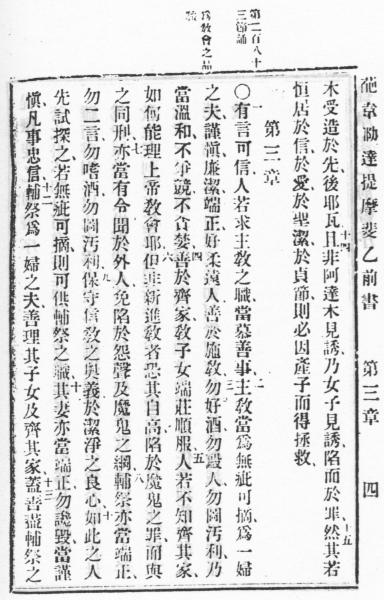 葩韋勒達提摩斐乙前書 第三章 四
木受造於先後耶瓦且非阿達木見誘乃女子見誘陷而於罪然其若
恒居於信於愛於聖潔於貞節則必因產子而得拯救
第三章
第二百八十
三節誦
爲教會之品
〇有言可信人若求主教之職當慕善事主教當爲無疵可摘爲一婦
之夫謹愼廉潔端正好柔遠人善於施教勿好酒勿毆人勿圖汚利乃
當溫和不爭競不貪婪善於齊家教子女端莊順服人若不知齊其家
如何能理上帝教會耶但非新進教者恐其自高陷於魔鬼之罪而與
之同刑亦當有令聞於外人免陷於怨聲及魔鬼之網輔祭亦當端正
勿二言勿嗜酒勿圖汚利保守信教之奧義於潔淨之良心如此之人
先試探之若無疵可摘則可供輔祭之職其妻亦當端正勿讒毀當謹
愼凡事忠信輔祭爲一婦之夫善理其子女及齊其家蓋善盡輔祭之